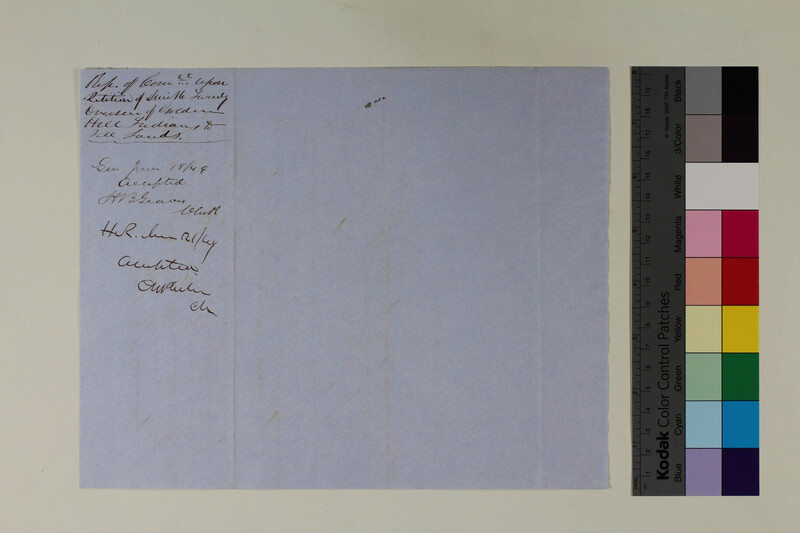 Rep. of Com.ee Upon
Petition of Smith Tweedy
Overseer of Golden
Hill Indians to
Sell Lands.
Sen June 18/49
Accepted
H B Graves
Clerk
H. R. June 21/49
Accepted
Clk
Kodak Color Control Patches
Blue
Cyan
Green
Yellow
Red
Magenta
White
3/Color
Black